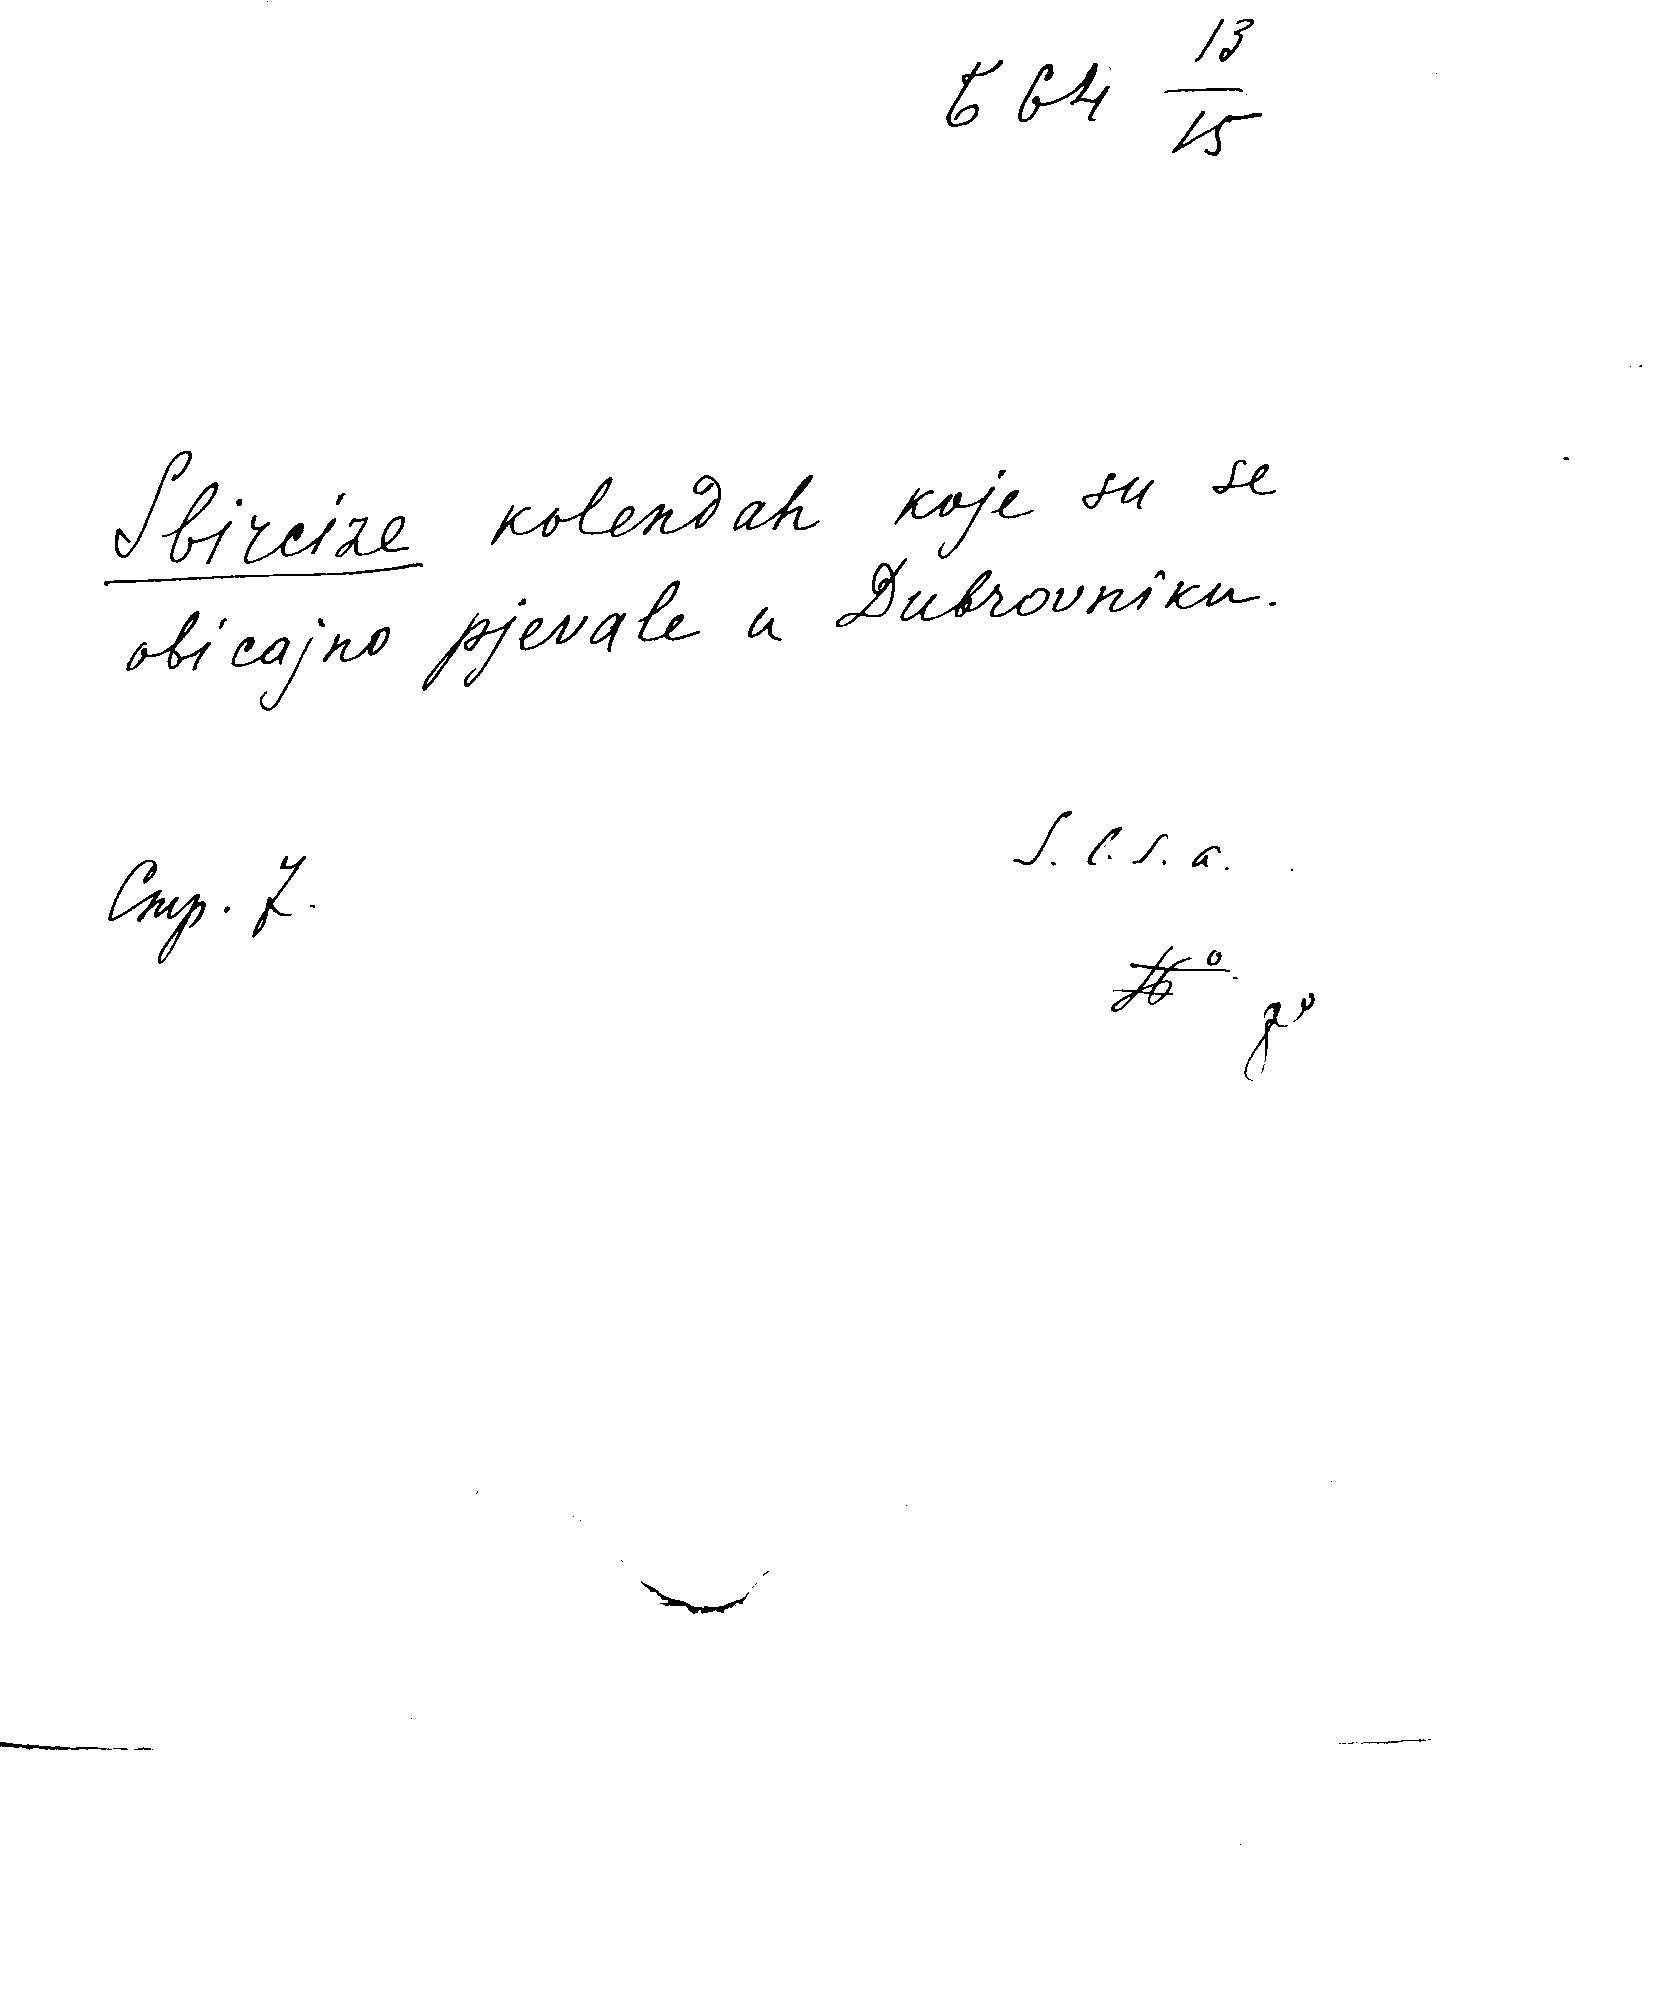 Б 64 13/15
Sbircize kolendah koje su se
obicajno pjevale u Dubrovniku.
S. l. s. a.
Стр. 7.
8°